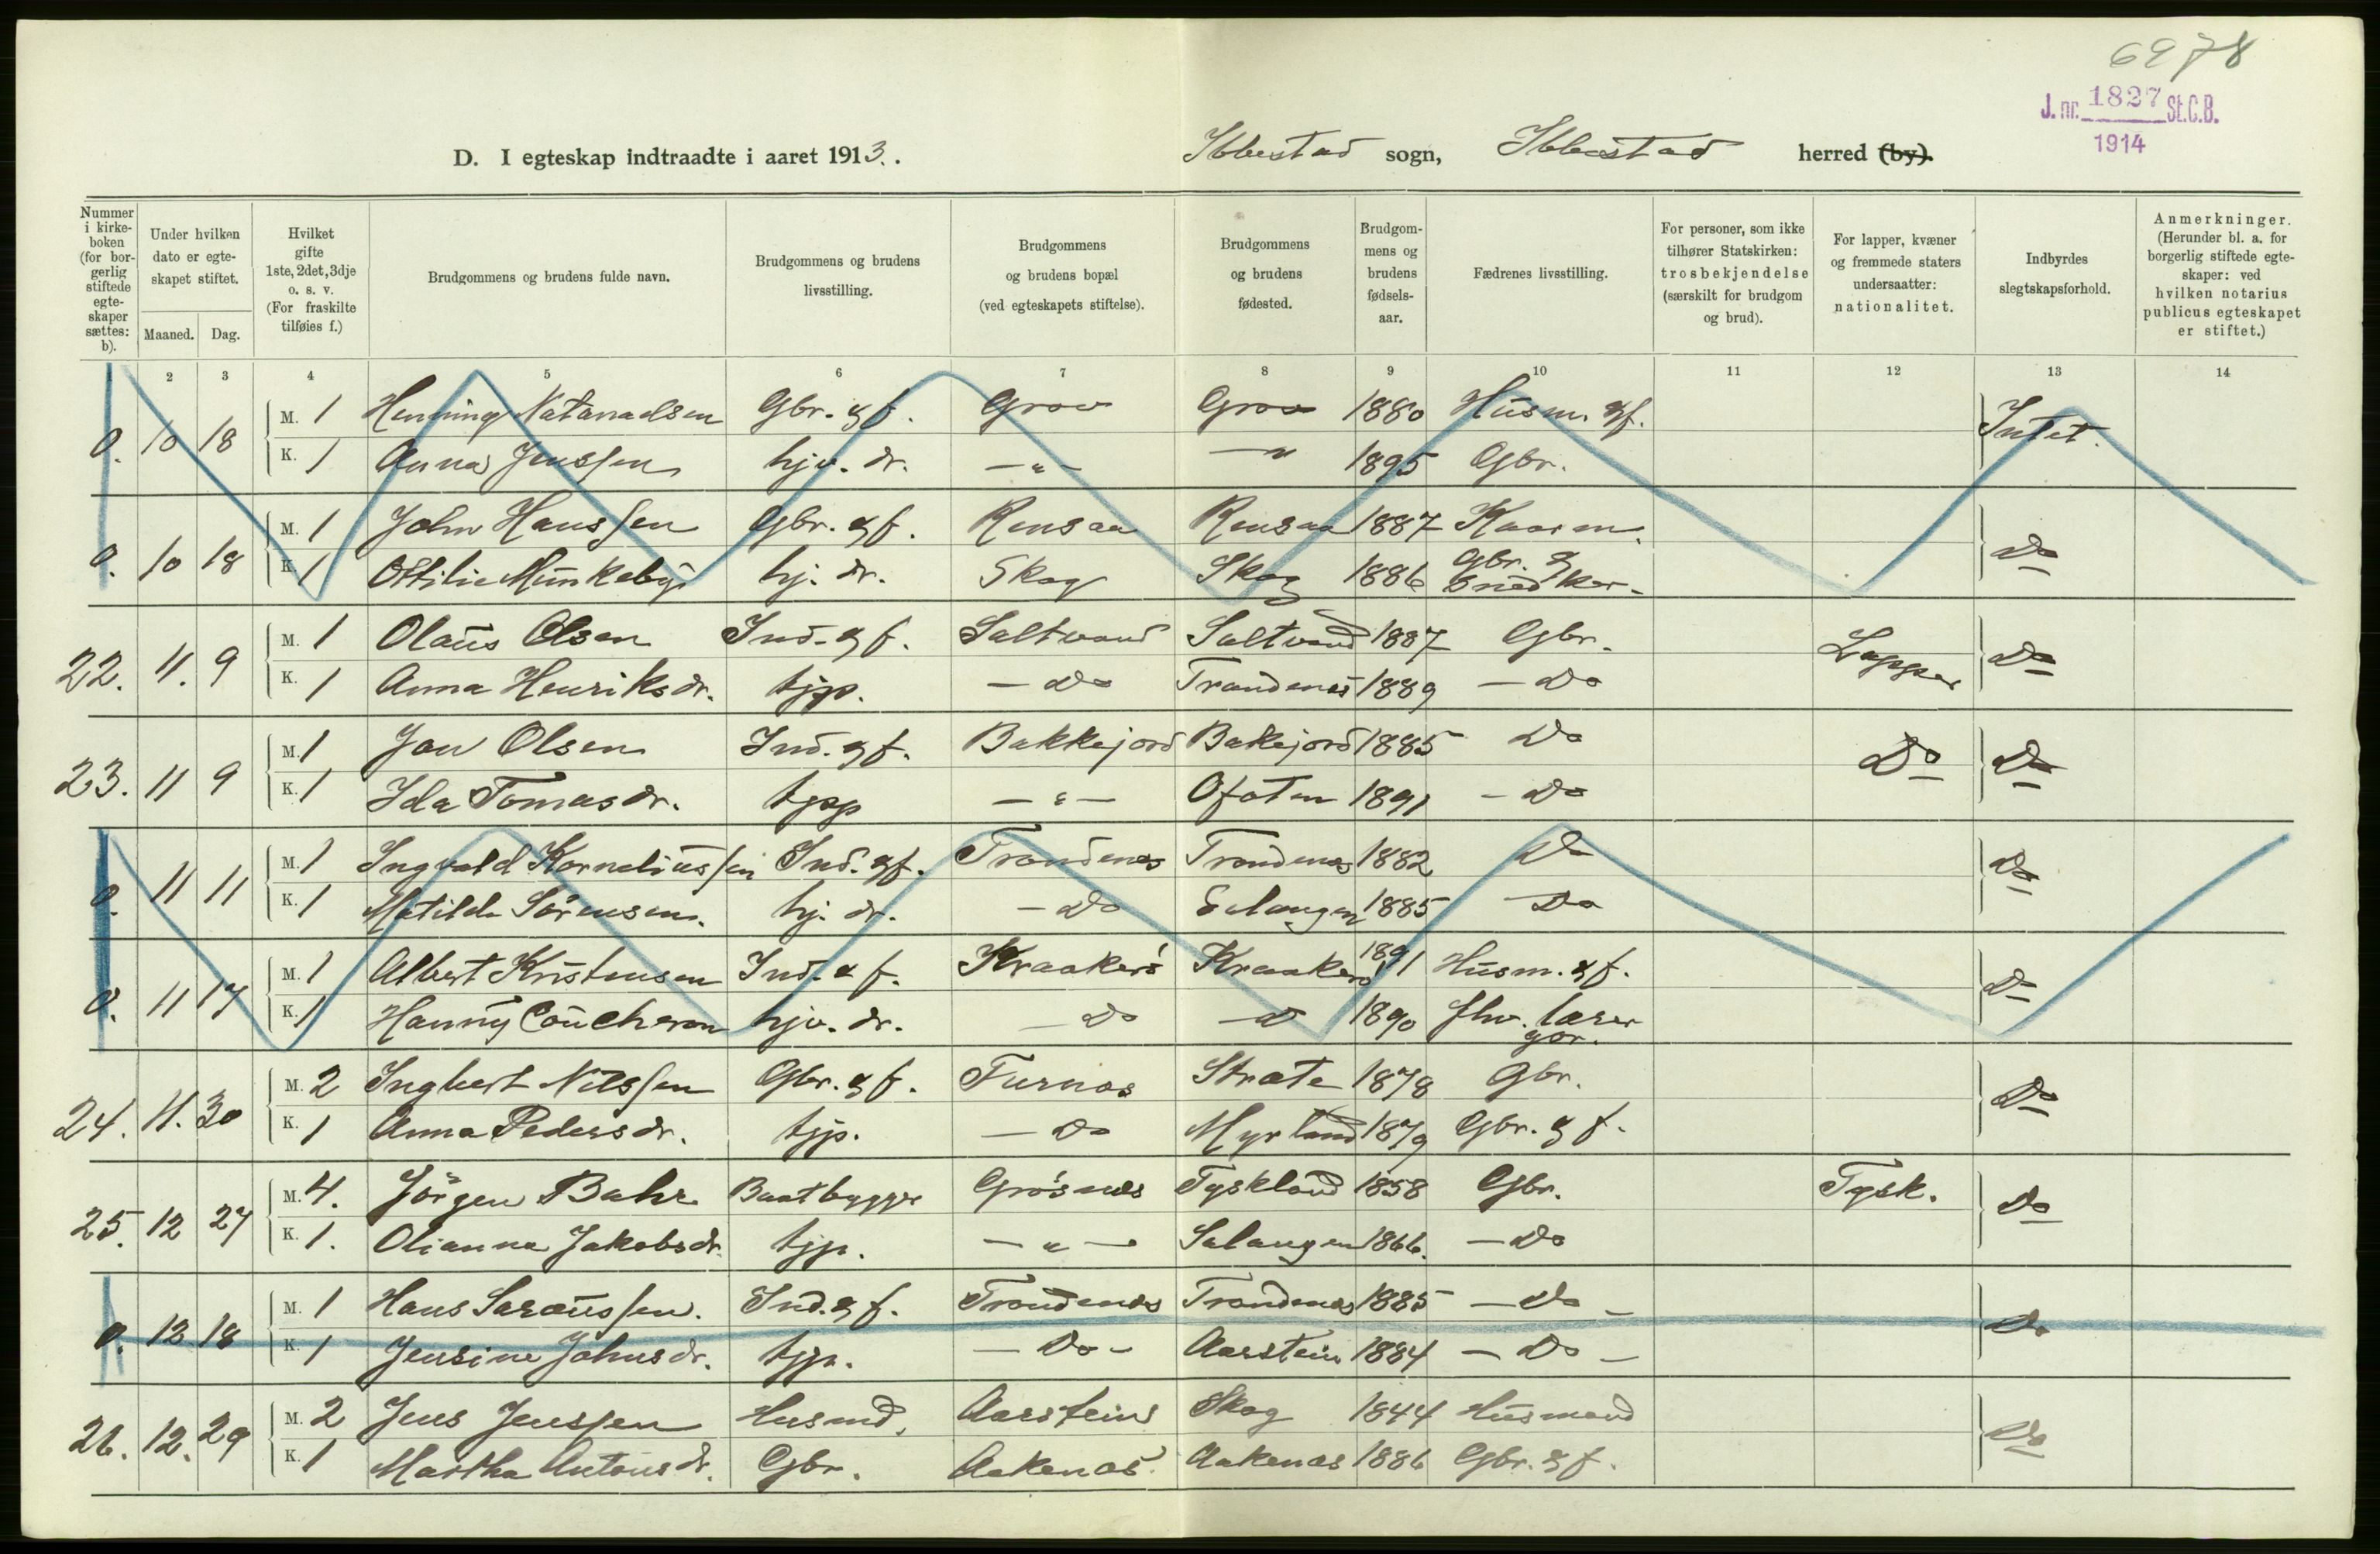 6978
J. nr. 1827 St.C.B.
1914
D. I egteskap indtraadte i aaret 1913. .
Ibbestad sogn, Ibbestad herred (by).
Nummer i kirkeboken (for borgerlig stiftede egteskaper sættes: b).
Under hvilken dato er egteskapet stiftet.
Maaned. Dag.
Hvilket gifte 1ste, 2det, 3dje o. s. v. (For fraskilte tilføies f.)
Brudgommens og brudens fulde navn.
Brudgommens og brudens livsstilling.
Brudgommens og brudens bopæl (ved egteskapets stiftelse).
Brudgommens og brudens fødested.
Brudgommens og brudens fødselsaar.
Fædrenes livsstilling.
For personer, som ikke tilhører Statskirken: trosbekjendelse (særskilt for brudgom og brud).
For lapper, kvæner og fremmede staters undersaatter: nationalitet.
Indbyrdes slegtskapsforhold.
Anmerkninger. (Herunder bl. a. for borgerlig stiftede egteskaper: ved hvilken notarius publicus egteskapet er stiftet.)
1 2 3 4 5 6 7 8 9 10 11 12 13 14
0. 10 18 M. 1 Henning Natanaelsen Gbr. & f. Grov Grov 1880 Husm. & f. Intet.
K. 1 Anna Jenssen hjv. dr. — " — — " 1895 Gbr.
0. 10 18 M. 1 John Hanssen Gbr. & f. Rensaa Rensaa 1887 Kaarm. Do
K. 1 Ottilie Munkeby hj. dr. Skog Skog 1886 Gbr. & Snedker.
22. 11. 9 M. 1 Olaus Olsen Ind. & f. Saltvand Saltvand 1887 Gbr. Lapper Do
K. 1 Anna Henriksdr. tjp. — Do Trondenes 1889 — Do
23. 11 9 M. 1 Jon Olsen Ind. & f. Bakkejord Bakejord 1885 Do Do Do
K. 1 Ida Tomasdr. tjp — " — Ofoten 1891 — Do
0. 11 11 M. 1 Ingvald Korneliussen Ind. & f. Trondenes Trondenes 1882 Do Do
K. 1 Matilde Sörensen. hj. dr. — Do Salangen 1885 — Do
0. 11 17 M. 1 Albert Kristensen Ind. & f. Kraakerö Kraakerö 1891 Husm. & f. Do
K. 1 Hanny Coucheron hjv. dr. — Do — Do 1890 fhv. lærer gbr.
24. 11. 30 M. 2 Ingbert Nilssen Gbr. & f. Furnes Stræte 1878 Gbr. Do
K. 1 Anna Pedersdr. tjp. — Do Myrland 1879 Gbr. & f.
25. 12 27 M. 4. Jörgen Bahr Baatbygger Grösnes Tyskland 1858 Gbr. Tysk. Do
K. 1. Olianna Jakobsdr. tjp. — " — Salangen 1866. — Do
0. 12. 18 M. 1 Hans Saraussen. Ind. & f. Trondenes Trondenes 1885 — Do — Do
K. 1 Jensine Johnsdr. tjp. — Do — Aarstein 1884 — Do —
26. 12. 29 M. 2 Jens Jenssen Husmd. Aarstein Skog 1844 Husmand Do
K. 1 Martha Antonsdr. Gbr. Aakenes. Aakenes 1886 Gbr. & f.